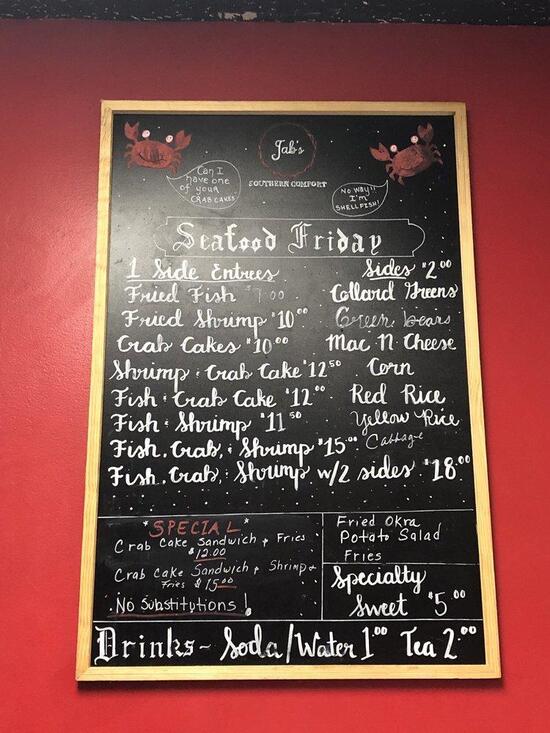 Jab's
SOUTHERN COMFORT
Can I
have one
of your
CRAB CAKES
NO WAY!!
I'M
SHELLFISH!
Seafood Friday
1 Side Entrees
Fried Fish $7.00
Fried Shrimp $10.00
Crab Cakes $10.00
Shrimp & Crab Cake $12.50
Fish & Crab Cake $12.00
Fish & Shrimp $11.50
Fish, Crab, & Shrimp $15.00
Fish, Crab, & Shrimp w/2 sides $18.00
Sides $2.00
Collard Greens
Green beans
Mac N Cheese
Corn
Red Rice
Yellow Rice
Cabbage
*SPECIAL*
Crab Cake Sandwich & Fries
$12.00
Crab Cake Sandwich & Shrimp &
Fries $15.00
No Substitutions!
Fried Okra
Potato Salad
Fries
Specialty
Sweet $5.00
Drinks~ Soda/Water 1.00 Tea 2.00